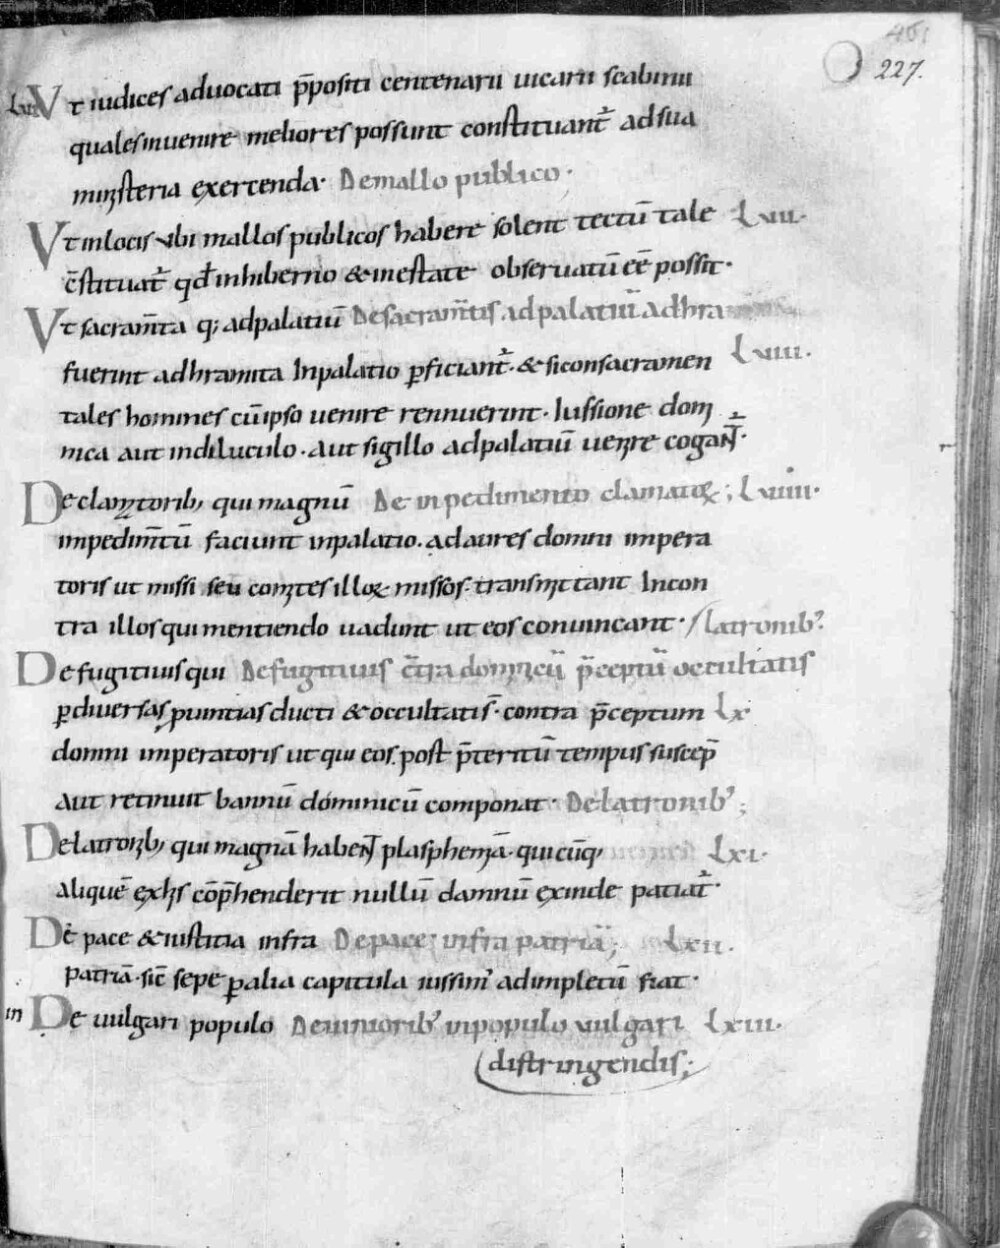 461
227.
Lvi Vt iudices aduocati p̄positi centenarii uicarii scabinii
quales inuenire meliores possunt constituant᷑ ad sua
ministeria exercenda. De mallo publico.
Vt in locis ubi mallos publicos habere solent tectū tale Lvii.
c̄stituat᷑ qđ in hiberno & in estate obseruatū eē possit.
Vt sacram̄ta q; ad palatiū De sacram̄tis ad palatiū adhra
fuerint adhramita In palatio ꝑficiant᷑. & si consacramen Lviii.
tales homines cū ipso uenire rennuerint. Iussione domi
nica aut indiculo. aut sigillo ad palatiū uenire cogant᷑.
De clamatorib; qui magnū De inpedimento clamatoꝝ; Lviiii.
impedim̄tū faciunt in palatio. ad aures domni impera
toris ut missi seu comites illoꝝ missos. transmittant Incon
tra illos qui mentiendo uadunt ut eos conuincant. / latronib᷒
De fugitiuis qui De fugitiuis c̄tra dominicū p̄ceptū occultatis
ꝑ diuersas puintias ducti & occultatis̄. contra p̄ceptum Lx
domni imperatoris ut qui eos. post p̄teritū tempus suscep̄
aut retinuit bannū dominicū componat. De latronib᷒;
De latronib; qui magnā habent plasphemiā. quicūq; Lxi.
aliquē ex his cōp̄henderit nullū damnū exinde patiat᷑.
De pace & iustitia infra De pace infra patriā; Lxii.
patriā. sic̄ sepe ꝑ alia capitula iussim᷒ adimpletū fiat.
in De uulgari populo De iuniorib᷒ in populo uulgari Lxiii.
distringendis;